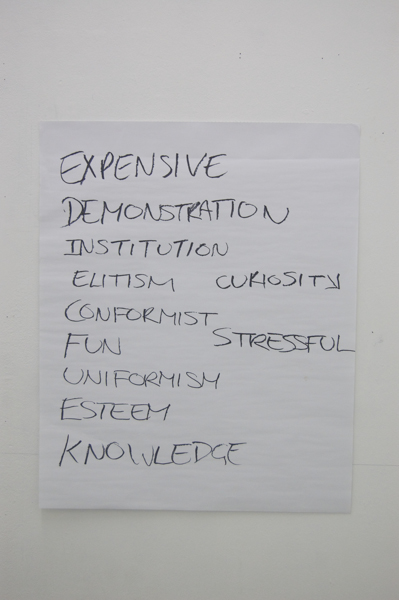 EXPENSIVE
DEMONSTRATION
INSTITUTION
ELITISM CURIOSITY
CONFORMIST
FUN STRESSFUL
UNIFORMISM
ESTEEM
KNOWLEDGE